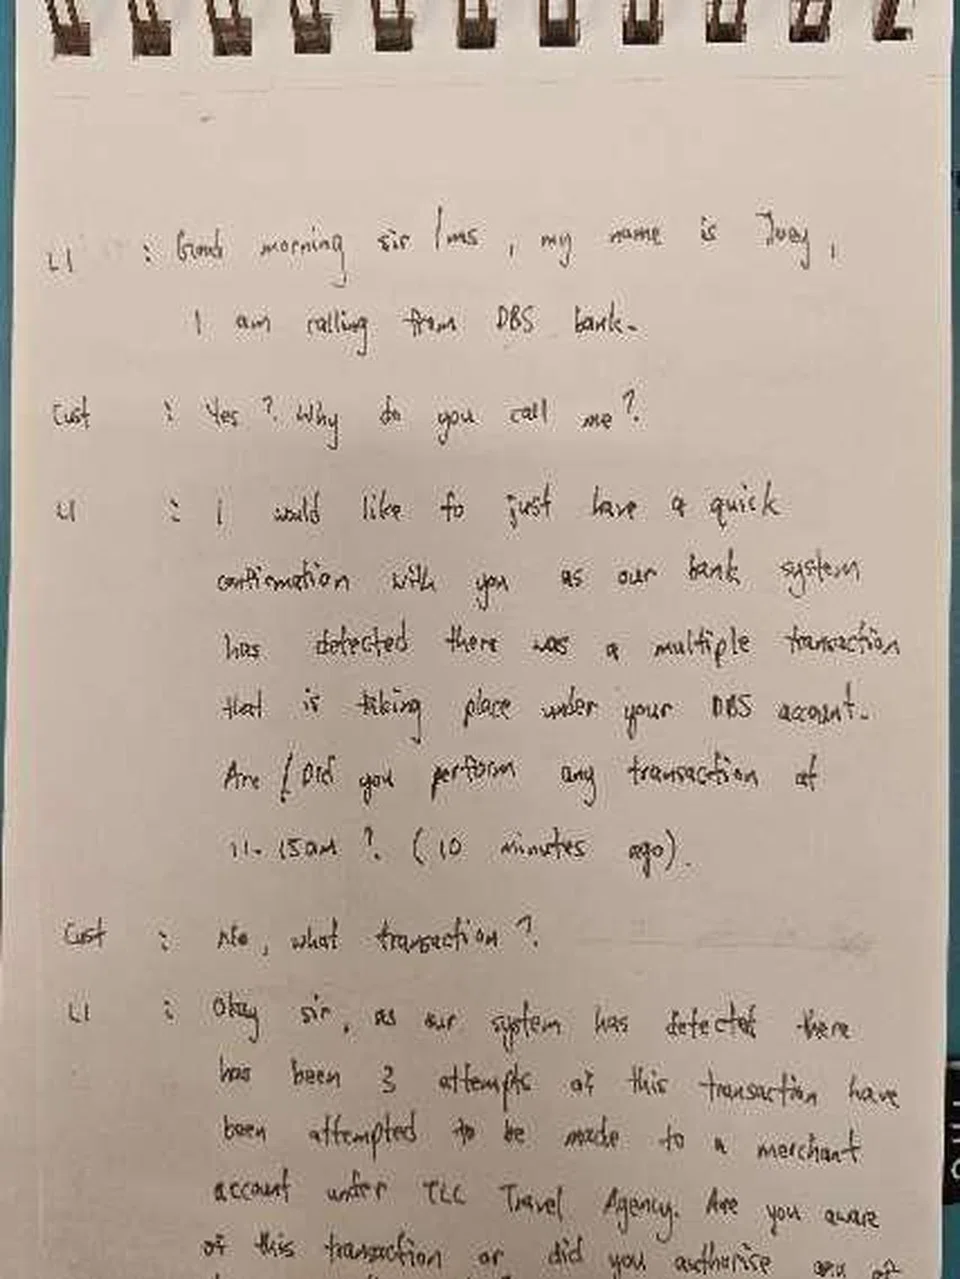 L1 : Good morning sir / ms , my name is Joey ,
I am calling from DBS bank.
Cust : Yes ? Why do you call me ?
L1 : I would like to just have a quick
confirmation with you as our bank system
has detected there was a multiple transaction
that is taking place under your DBS account.
Are / Did you perform any transaction at
11.15am ? (10 minutes ago).
Cust : No , what transaction ?
L1 : Okay sir , as our system has detected there
has been 3 attempts of this transaction have
been attempted to be made to a merchant
account under TLC Travel Agency. Are you aware
of this transaction or did you authorise any of